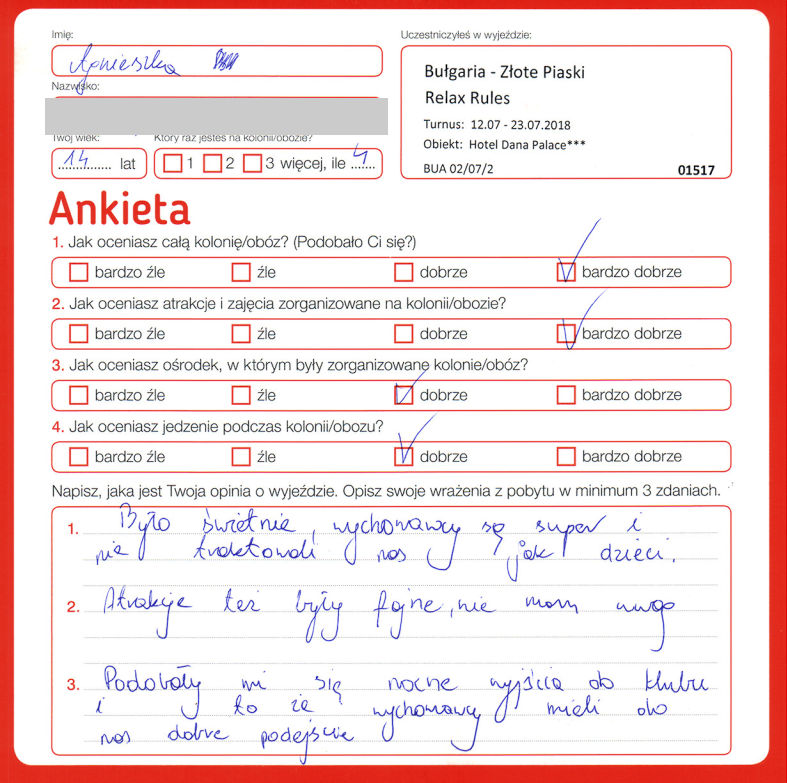 Imię:
Agnieszka
Nazwisko:
Twój wiek:
14 lat
Który raz jesteś na kolonii/obozie?
1 2 3 więcej, ile 4
Uczestniczyłeś w wyjeździe:
Bułgaria - Złote Piaski
Relax Rules
Turnus: 12.07 - 23.07.2018
Obiekt: Hotel Dana Palace***
BUA 02/07/2 01517
Ankieta
1. Jak oceniasz całą kolonię/obóz? (Podobało Ci się?)
bardzo źle źle dobrze bardzo dobrze
2. Jak oceniasz atrakcje i zajęcia zorganizowane na kolonii/obozie?
bardzo źle źle dobrze bardzo dobrze
3. Jak oceniasz ośrodek, w którym były zorganizowane kolonie/obóz?
bardzo źle źle dobrze bardzo dobrze
4. Jak oceniasz jedzenie podczas kolonii/obozu?
bardzo źle źle dobrze bardzo dobrze
Napisz, jaka jest Twoja opinia o wyjeździe. Opisz swoje wrażenia z pobytu w minimum 3 zdaniach.
1. Było świetnie, wychowawcy są super i
nie traktowali nas jak dzieci.
2. Atrakcje też były fajne, nie mam uwag
3. Podobały mi się nocne wyjścia do klubu
i to że wychowawcy mieli do
nas dobre podejście